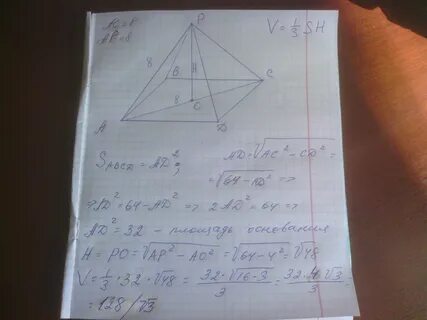 AC = 8
AP = 8
V = 1/3 SH
P
8
B
H
C
8
O
A
D
S_ABCD = AD²;
AD = √(AC² - CD²) =
= √(64 - AD²) =>
=> AD² = 64 - AD² => 2AD² = 64 =>
AD² = 32 - площадь основания
H = PO = √(AP² - AO²) = √(64 - 4²) = √48
V = 1/3 · 32 · √48 = 32 · √(16 · 3) / 3 = 32 · 4 √3 / 3 =
= 128 / √3